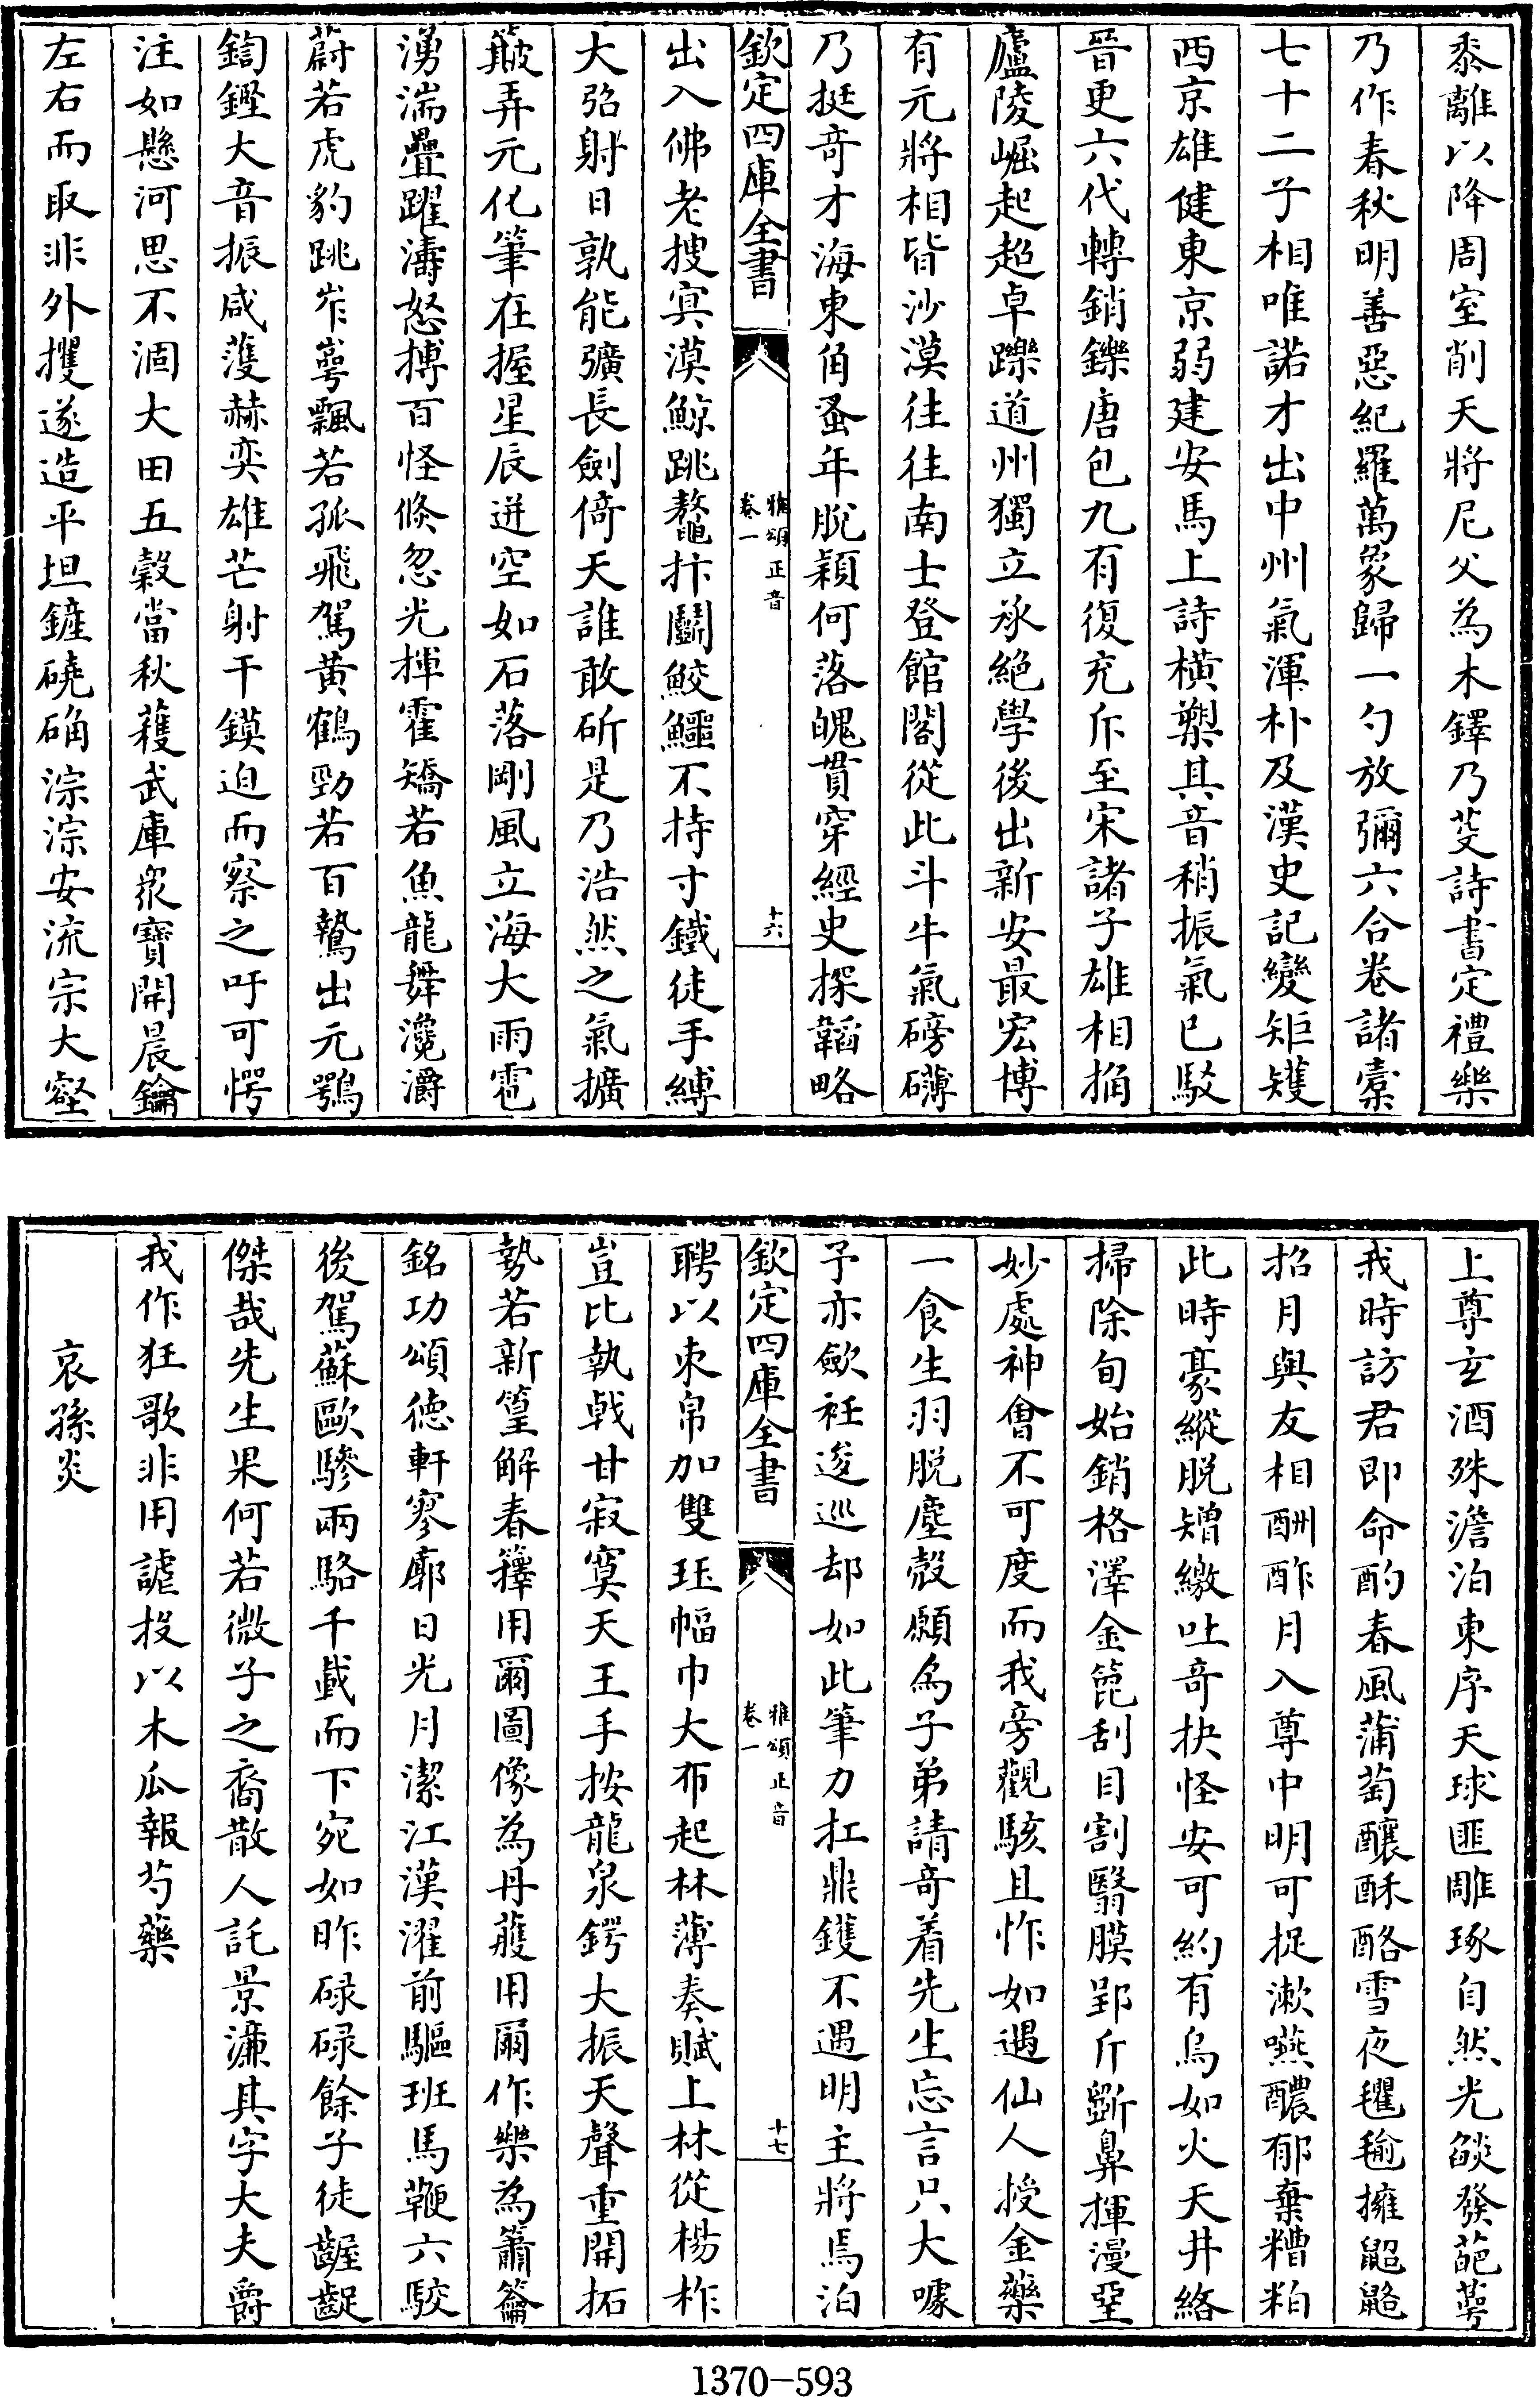 黍離以降周室削天將尼父為木鐸乃芟詩書定禮樂
乃作春秋明善惡紀羅萬象歸一勺放彌六合卷諸橐
七十二子相唯諾才出中州氣渾朴及漢史記變矩矱
西京雄健東京弱建安馬上詩横槊其音稍振氣已駁
晉更六代轉銷鑠唐包九有復充斥至宋諸子雄相捔
廬陵崛起超卓躒道州獨立承絶學後出新安最宏博
有元將相皆沙漠往往南士登館閣從此斗牛氣磅礴
乃挺奇才海東角蚤年脱穎何落魄貫穿經史探韜略
欽定四庫全書
雅頌正音
卷一
十六
出入佛老搜㝠漠鯨跳鼇抃鬬鮫鱷不持寸鐵徒手縛
大弨射日孰能彍長劍倚天誰敢斫是乃浩然之氣擴
簸弄元化筆在握星辰迸空如石落剛風立海大雨雹
湧湍疊躍濤怒搏百怪倏忽光揮霍矯若魚龍舞瀺灂
蔚若虎豹跳岝崿飄若孤飛駕黄鶴勁若百鷙出元鶚
鍧鏗大音振咸濩赫奕雄芒射干鏌迫而察之吁可愕
注如懸河思不涸大田五榖當秋穫武庫衆寶開晨鑰
左右而取非外攫遂造平坦鏟磽确淙淙安流宗大壑
上尊玄酒殊澹泊東序天球匪雕琢自然光燄發葩萼
我時訪君即命酌春風蒲萄釀酥酪雪夜氍毹擁鼦䶅
招月與友相酬酢月入尊中明可捉漱嚥醲郁棄糟粕
此時豪縱脱矰繳吐奇抉怪安可約有烏如火天井絡
掃除旬始銷格澤金篦刮目割翳膜郢斤斵鼻揮漫堊
妙處神會不可度而我旁觀駭且怍如遇仙人授金藥
一食生羽脱塵殼願為子弟請奇着先生忘言只大噱
予亦歛袵逡巡却如此筆力扛鼎鑊不遇明主將焉泊
欽定四庫全書
雅頌正音
卷一
十七
聘以束帛加雙珏幅巾大布起林薄奏賦上林從楊柞
豈比執戟甘寂寞天王手按龍泉鍔大振天聲重開拓
勢若新篁解春籜用爾圖像為丹雘用爾作樂為簫籥
銘功頌德軒寥廓日光月潔江漢濯前驅班馬鞭六駮
後駕蘇歐驂兩駱千載而下宛如昨碌碌餘子徒齷齪
傑哉先生果何若微子之裔散人託景濂其字大夫爵
我作狂歌非用謔投以木瓜報芍藥
哀孫炎
1370-593